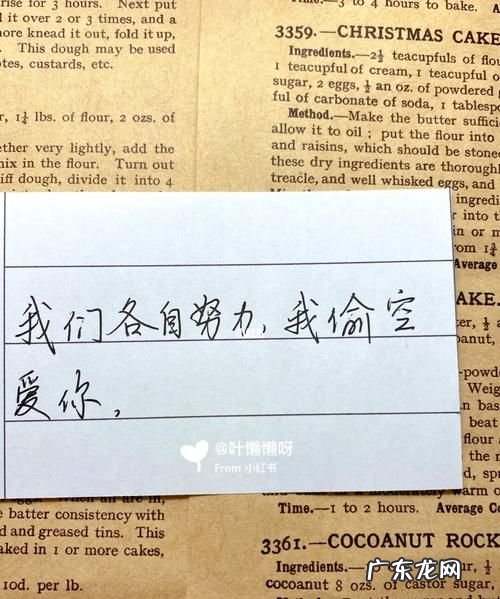 rise for 3 hours. Next put
l it over 2 or 3 times, and a
ore knead it out, fold it up,
This dough may be used
otes, custards, etc.
r, 1¼ lbs. of flour, 2 ozs. of
ether very lightly, add the
nix in the flour. Turn out
iff dough, divide it into 4
Time.—3 to 4 hours to bake.
3359.—CHRISTMAS CAKE
Ingredients.—2½ teacupfuls of flou
1 teacupful of cream, 1 teacupful o
sugar, 2 eggs, ½ an oz. of powdered g
ful of carbonate of soda, 1 tablespo
Method.—Make the butter suffici
allow it to oil ; put the flour into
and raisins, which should be stone
these dry ingredients are thoroughl
treacle, and well whisked eggs, and
ingredi
into t
in or m
om 1¾
Average
我们各自努力,我偷空
爱你,
@叶懒懒呀
From 小红书
AKE.
er, ¼
anut,
-powde
Weig
n bas
beat
flour
d, sp
warm o
Time.—1 to 2 hours. Average Co
3361.—COCOANUT ROCK
Ingredients.—
cocoanut 8 ozs. of castor sugar,
When all are in,
e batter consistency with
and greased tins. This
aked in 1 or more cakes,
10d. per lb.
广东龙网